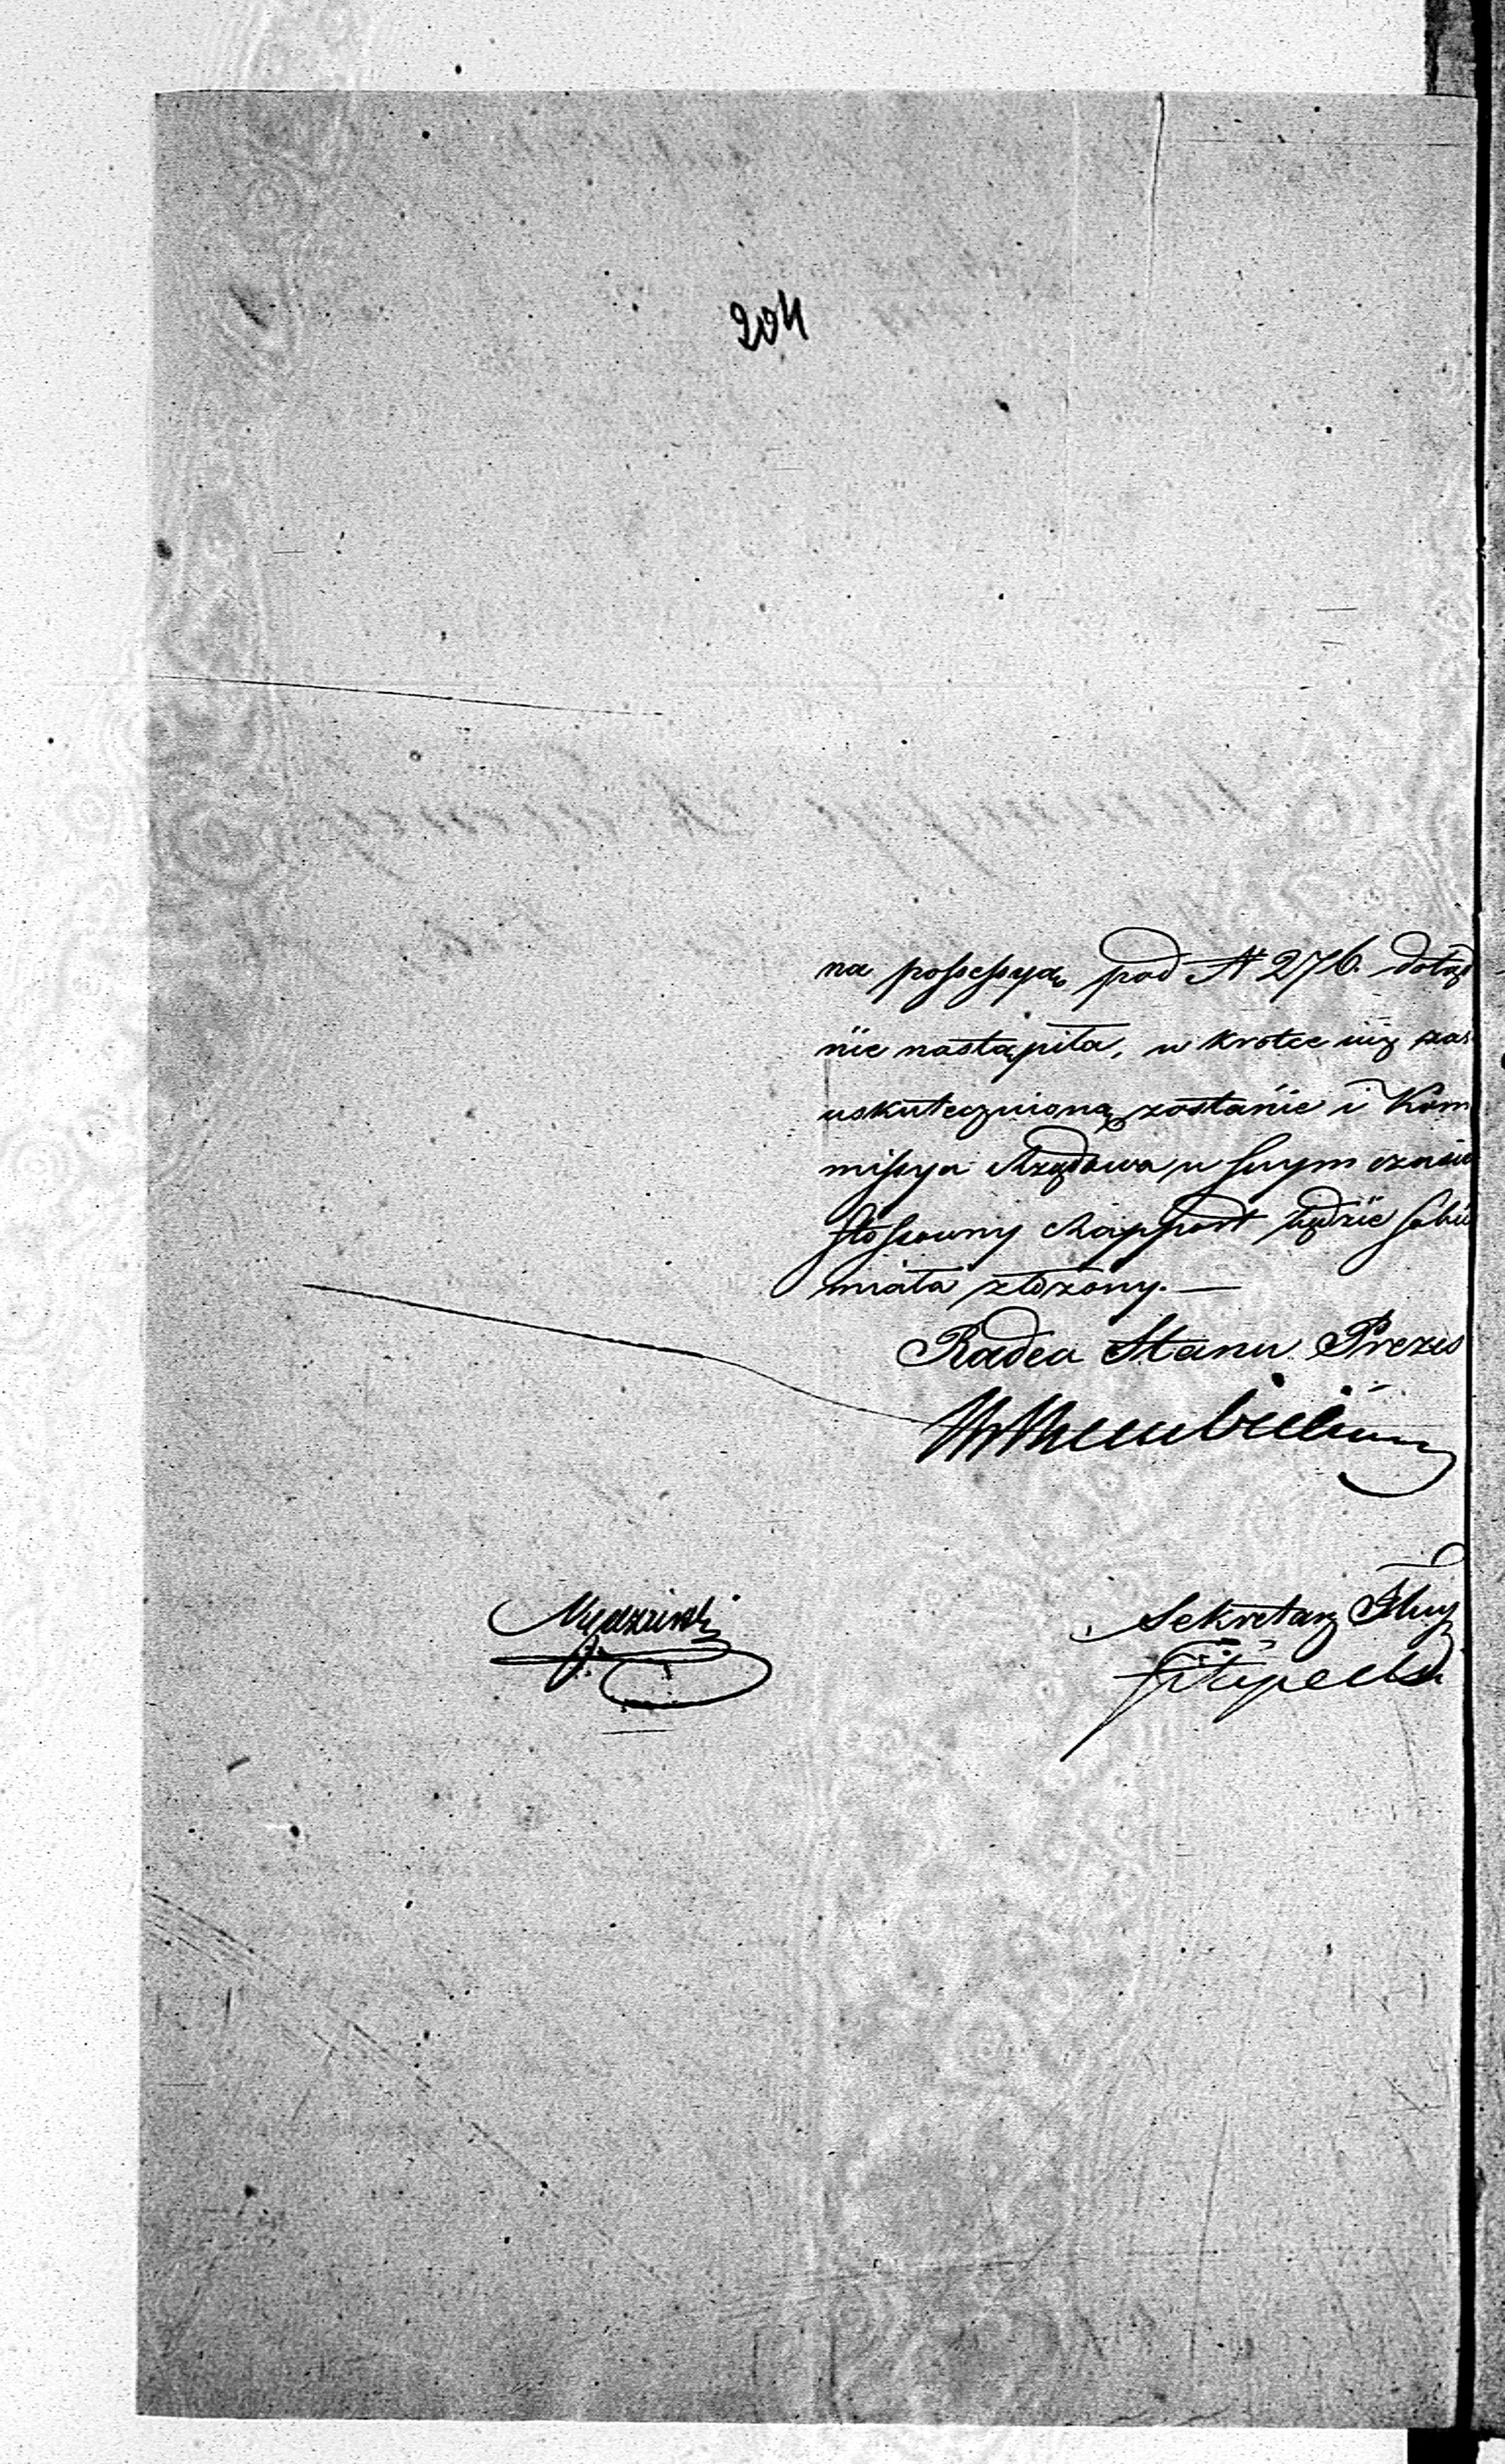 204
na possessyą pod N 276. dotąd
nie nastąpiła, w krotce iuż zaś
uskutecznioną zostanie i Kom
missya Rządowa w swym czasie
stosowny Rapport będzie sobie
miała złożony. —
Radca Stanu Prezes
Sekretarz
Filipecki